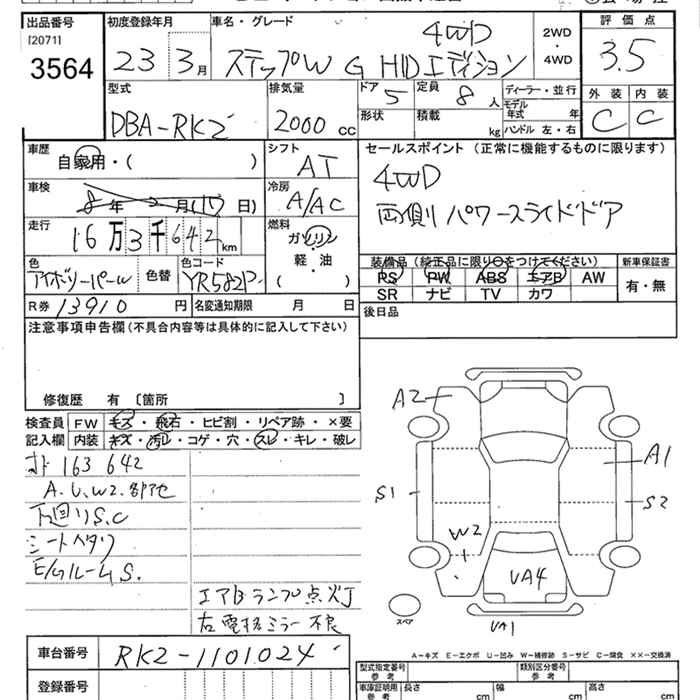 出品番号 初度登録年月 車名・グレード 評価点
[2071]
3564
23 3月
4WD
ステップW G HDエディション
2WD
・
4WD
3.5
型式 排気量 ドア 定員 ディーラー・並行 外装 内装
DBA-RK2 2000cc 5 8人
形状 積載 kg
モデル年式 年
ハンドル 左・右
C C
車歴 シフト セールスポイント (正常に機能するものに限ります)
自家用・( ) AT
4WD
車検 冷房
8年2月(17日) A/AC
両側パワースライドドア
走行 燃料
16万3千642km
ガソリン
軽・油
( )
色 色替 色コード
アイボリーパール YR582P
装備品 (純正品に限り○をつけてください) 新車保証書
PS PW ABS エアB AW 有・無
SR ナビ TV カワ
R券 13910円 名変通知期限 月 日
後日品
注意事項申告欄 (不具合内容等は具体的に記入して下さい)
修復歴 有 〔箇所 〕
検査員 FW キズ・飛石・ヒビ割・リペア跡・×要
記入欄 内装 キズ・汚レ・コゲ・穴・スレ・キレ・破レ
163642
A.U.W2.
下廻りS.C
シートヘタリ
E/GルームS.
エアBランプ点灯
右電格ミラー不良
A2
A1
S1
S2
W2
VA4
VA1
スペア
A-キズ E-エクボ U-凹み W-補修跡 S-サビ C-腐食 ××-交換済
車台番号 RK2-1101024
登録番号
型式指定番号 参考 類別区分番号 参考
車庫証明用 参考 長さ cm 幅 cm 高さ cm